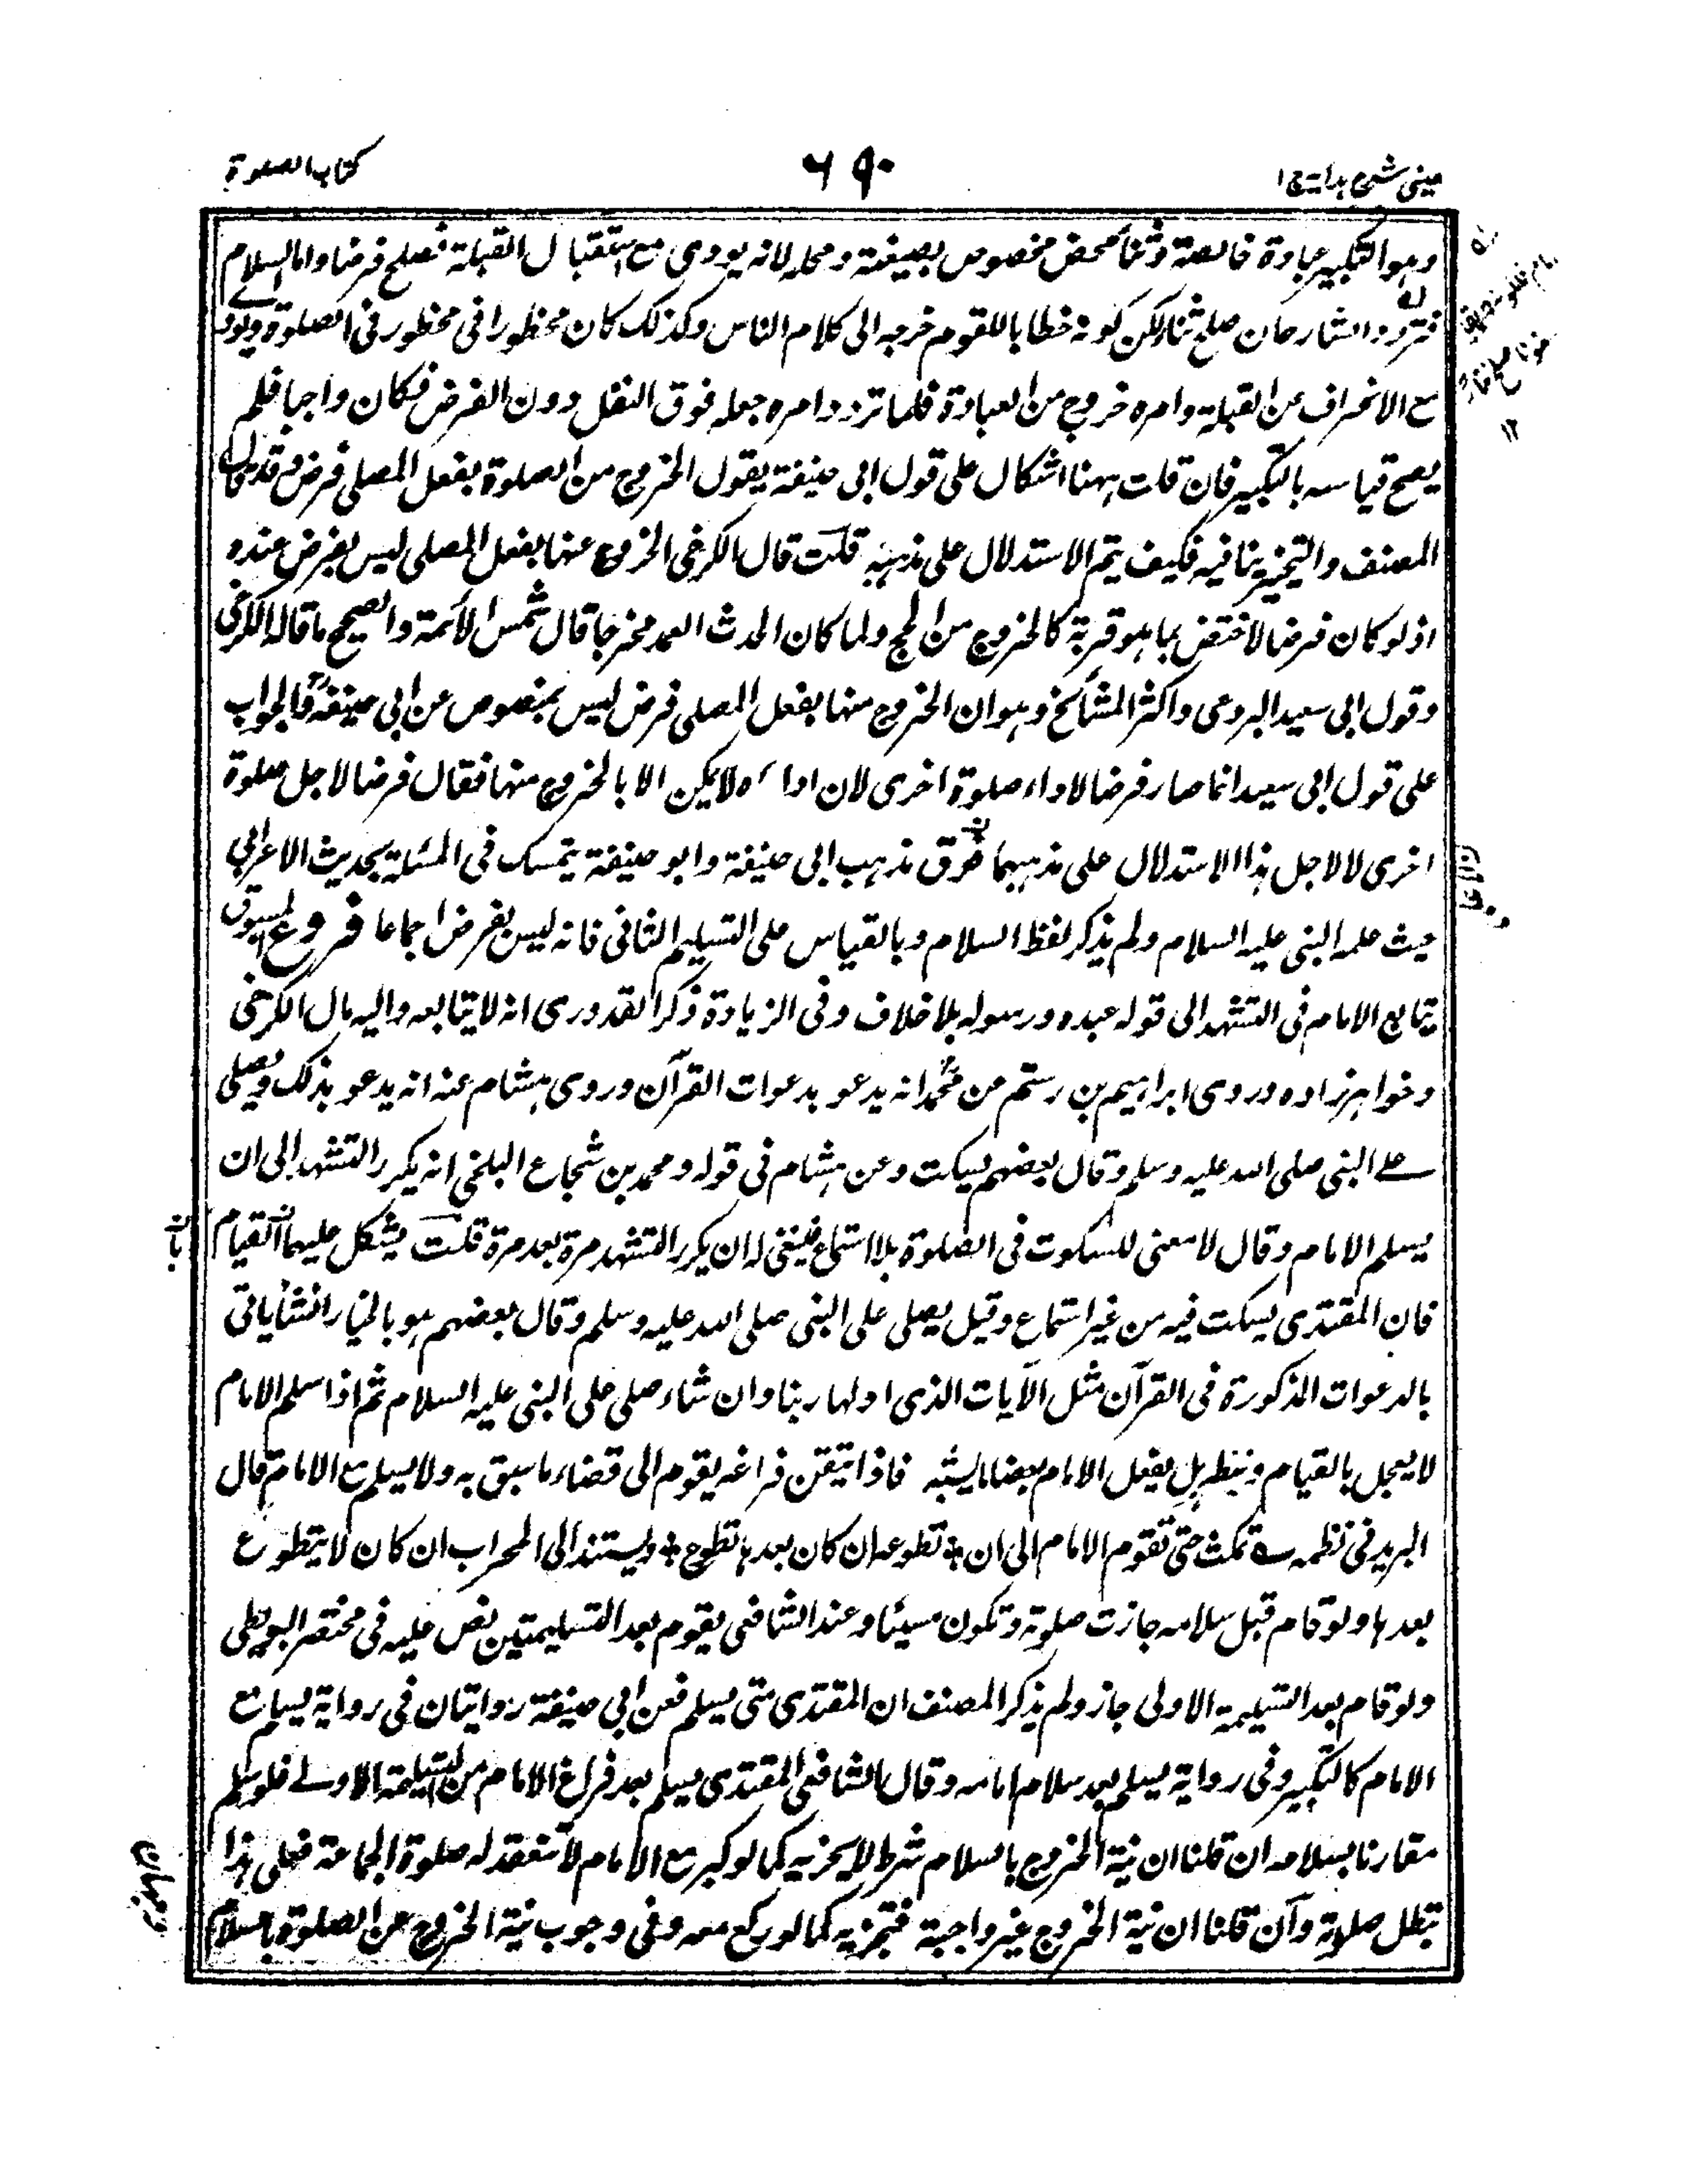 عيني شرح هداية ج ١
٦٩٠
كتاب الصلوة
وهو التكبير عبادة خالصة وثناء محض مخصوص بصيغته ومحله لانه يودى مع استقبال القبلة فصلح فرضا واما السلام
فتردد الشارحان صلح ثناء لكن كونه خطابا للقوم خرجه الى كلام الناس وكذلك كان محظورا فى محظور فى الصلوة ويودى
مع الانحراف عن القبلة وامره خروج من العبادة فلما تردد امره جعله فوق النفل دون الفرض فكان واجبا فلم
يصح قياسه بالتكبير فان قلت ههنا اشكال على قول ابى حنيفة يقول الخروج من الصلوة بفعل المصلى فرض وقد قال
المصنف والتخيير ينافيه فكيف يتم الاستدلال على مذهبه قلت قال الكرخى الخروج عنها بفعل المصلى ليس بفرض عنده
اذ لو كان فرضا لاختص بما هو قربة كالخروج من الحج ولما كان الحدث العمد مخرجا قال شمس الأئمة والصحيح ما قاله الكرخى
وقول ابى سعيد البردعى واكثر المشائخ وهو ان الخروج منها بفعل المصلى فرض ليس بمنصوص عن ابى حنيفة فالجواب
على قول ابى سعيد انما صار فرضا لاداء صلوة اخرى لان اداءه لا يمكن الا بالخروج منها فقال فرضا لاجل صلوة
اخرى لا لاجل هذا الاستدلال على مذهبهما فوق مذهب ابى حنيفة وابو حنيفة يتمسك فى المسئلة بحديث الاعرابى
حيث علمه النبى عليه السلام ولم يذكر لفظ السلام وبالقياس على التسليم الثانى فانه ليس بفرض اجماعا فروع المسبوق
يتابع الامام فى التشهد الى قوله عبده ورسوله بلا خلاف وفى الزيادة ذكر القدورى انه لا يتابعه واليه مال الكرخى
وخواهرزاده وروى ابراهيم بن رستم من محمد انه يدعو بدعوات القرآن وروى هشام عنه انه يدعو بذلك ويصلى
على النبى صلى الله عليه وسلم وقال بعضهم يسكت وعن هشام فى قوله ومحمد بن شجاع البلخى انه يكرر التشهد الى ان
يسلم الامام وقال لا معنى للسكوت فى الصلوة بلا استماع فينبغى له ان يكرر التشهد مرة بعد مرة قلت يشكل عليهما القيام
فان المقتدى يسكت فيه من غير استماع وقيل يصلى على النبى صلى الله عليه وسلم وقال بعضهم هو بالخيار ان شاء ياتى
بالدعوات المذكورة فى القرآن مثل الآيات الذى اولها ربنا وان شاء صلى على النبى عليه السلام ثم اذا سلم الامام
لا يعجل بالقيام وينظر هل يفعل الامام بعضا ما يشبه فاذا تيقن فراغه يقوم الى قضاء ما سبق به ولا يسلم مع الامام قال
البريد فى نظمه تمكث حتى تقوم الامام الى ان تطوعه ان كان بعدها تطوع وليستند الى المحراب ان كان لا يتطوع
بعدها ولو قام قبل سلامه جازت صلوته وتكون مسيئا وعند الشافعى يقوم بعد التسليمتين نص عليه فى مختصر البويطى
ولو قام بعد التسليمة الاولى جاز ولم يذكر المصنف ان المقتدى متى يسلم فعن ابى حنيفة روايتان فى رواية يسلم مع
الامام كالتكبير وفى رواية يسلم بعد سلام امامه وقال الشافعى المقتدى يسلم بعد فراغ الامام من التسليمة الاولى فلو سلم
مقارنا بسلامه ان قلنا ان نية الخروج بالسلام شرط لا يجزيه كما لو كبر مع الامام لا تنعقد له صلوة الجماعة فعلى هذا
تبطل صلوته وآن قلنا ان نية الخروج غير واجبة فتجزيه كما لو ركع معه وفى وجوب نية الخروج عن الصلوة بالسلام